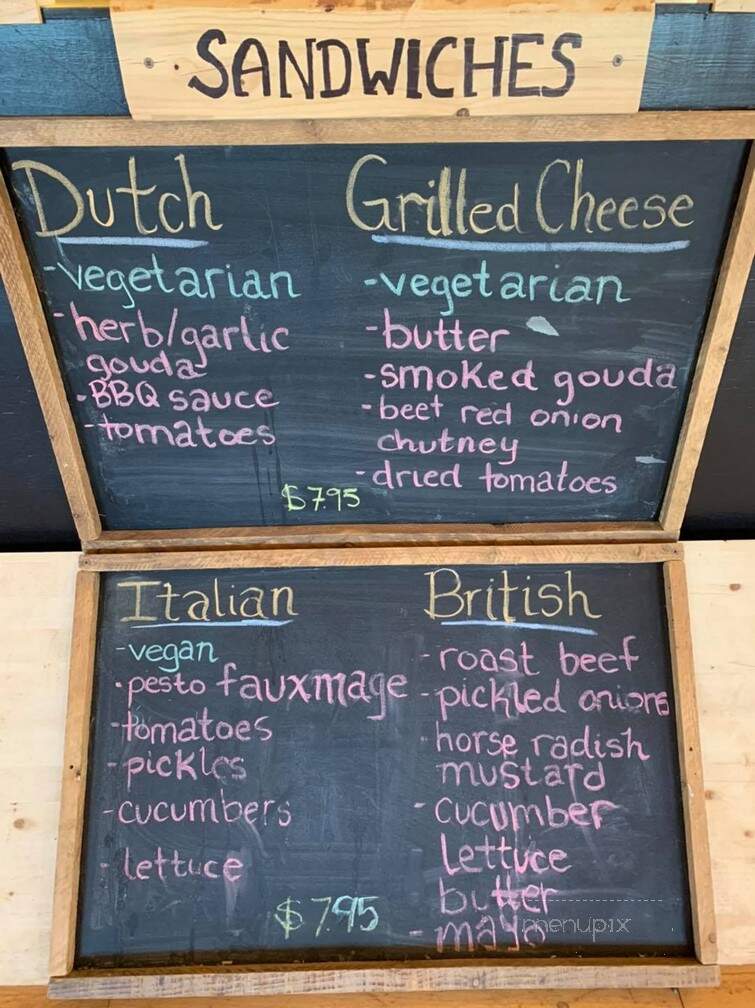 SANDWICHES
Dutch
-vegetarian
-herb/garlic
gouda
-BBQ sauce
-tomatoes
Grilled Cheese
-vegetarian
-butter
-smoked gouda
-beet red onion
chutney
-dried tomatoes
$7.95
Italian
-vegan
-pesto fauxmage
-tomatoes
-pickles
-cucumbers
- lettuce
$7.95
British
-roast beef
-pickled onions
-horse radish
mustard
-cucumber
Lettuce
butter
-mayo
menupix